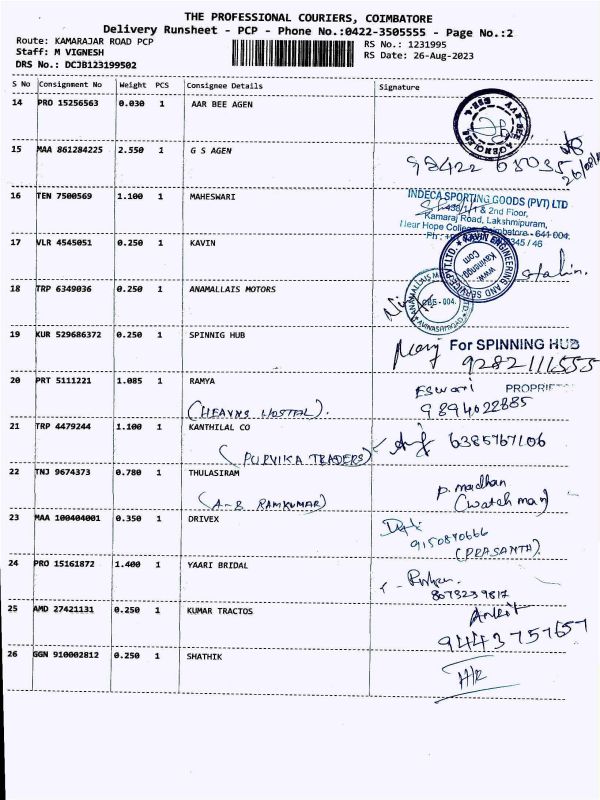 THE PROFESSIONAL COURIERS, COIMBATORE
Delivery Runsheet - PCP - Phone No.:0422-3505555 - Page No.:2
Route: KAMARAJAR ROAD PCP
RS No.: 1231995
Staff: M VIGNESH
RS Date: 26-Aug-2023
DRS No.: DCJB123199502
S No Consignment No Weight PCS Consignee Details Signature
14 PRO 15256563 0.030 1 AAR BEE AGEN
15 MAA 861284225 2.550 1 G S AGEN
98422 65035
16 TEN 7500569 1.100 1 MAHESWARI
INDECA SPORTING GOODS (PVT) LTD
& 2nd Floor,
Kamaraj Road, Lakshmipuram,
Near Hope College, Coimbatore - 641 004.
17 VLR 4545051 0.250 1 KAVIN
KAVIN ENGINEERING AND SERVICE PVT LTD.
Stalin.
18 TRP 6349036 0.250 1 ANAMALLAIS MOTORS
19 KUR 529686372 0.250 1 SPINNIG HUB
For SPINNING HUB
9282111555
20 PRT 5111221 1.085 1 RAMYA
Eswari
9894022885
(HEAVNS HOSTAL).
21 TRP 4479244 1.100 1 KANTHILAL CO
6385767106
(PURVIKA TRADERS)
22 TNJ 9674373 0.780 1 THULASIRAM
P. madhan
(watch man)
(A-B RAMKUMAR)
23 MAA 100404001 0.350 1 DRIVEX
9150870666
(PRASANTH).
24 PRO 15161872 1.400 1 YAARI BRIDAL
8073239817
25 AMD 27421131 0.250 1 KUMAR TRACTOS
Ankit
9443757657
26 GGN 910002812 0.250 1 SHATHIK